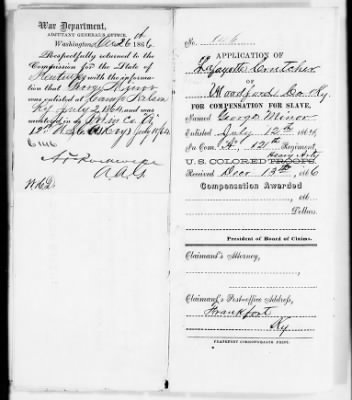 War Department,
ADJUTANT GENERAL'S OFFICE,
Washington, Dec 26th 1866.
Respectfully returned to the
Commission for the State of
Kentucky with the informa-
tion that George Minor
was enlisted at Camp Nelson
Ky July 2 1864 and was
mustered in as Co "A"
12" July 12/64
A.A.G.
No.
APPLICATION OF
Lafayette Crutcher
OF
Woodford Co. Ky.
FOR COMPENSATION FOR SLAVE,
Named George Minor
Enlisted July 12th 1864,
In Com. "A", 12th Regiment,
Heavy Arty
U. S. COLORED TROOPS.
Received Decr 13th 1866
Compensation Awarded
Dollars.
President of Board of Claims.
Claimant's Attorney,
Claimant's Post-office Address,
Frankfort
Ky
FRANKFORT COMMONWEALTH PRINT.